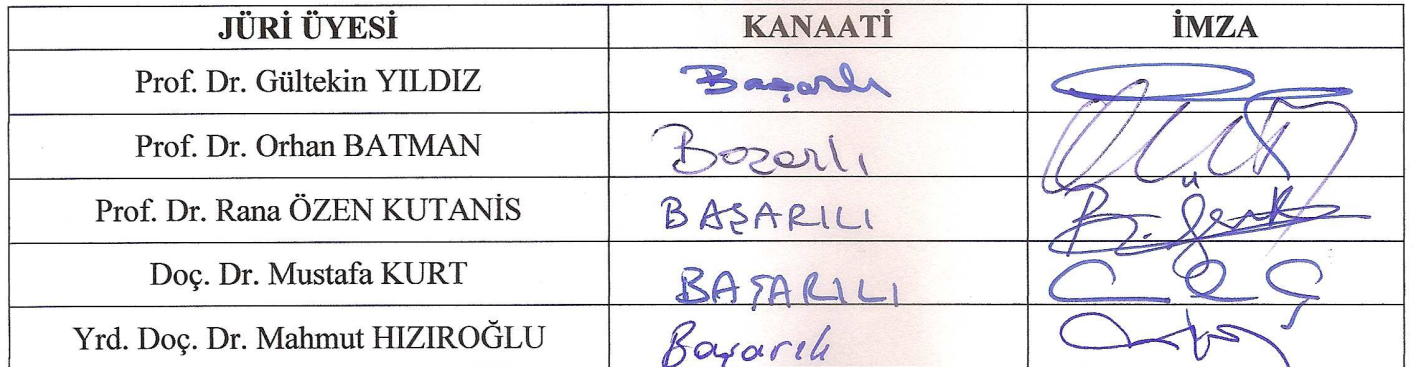 JÜRİ ÜYESİ KANAATİ İMZA
Prof. Dr. Gültekin YILDIZ Başarılı
Prof. Dr. Orhan BATMAN Başarılı
Prof. Dr. Rana ÖZEN KUTANİS BAŞARILI
Doç. Dr. Mustafa KURT BAŞARILI
Yrd. Doç. Dr. Mahmut HIZIROĞLU Başarılı